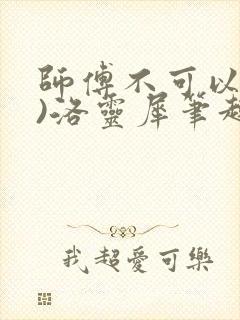 師傅不可以
)洛靈犀筆趣
我超愛可樂